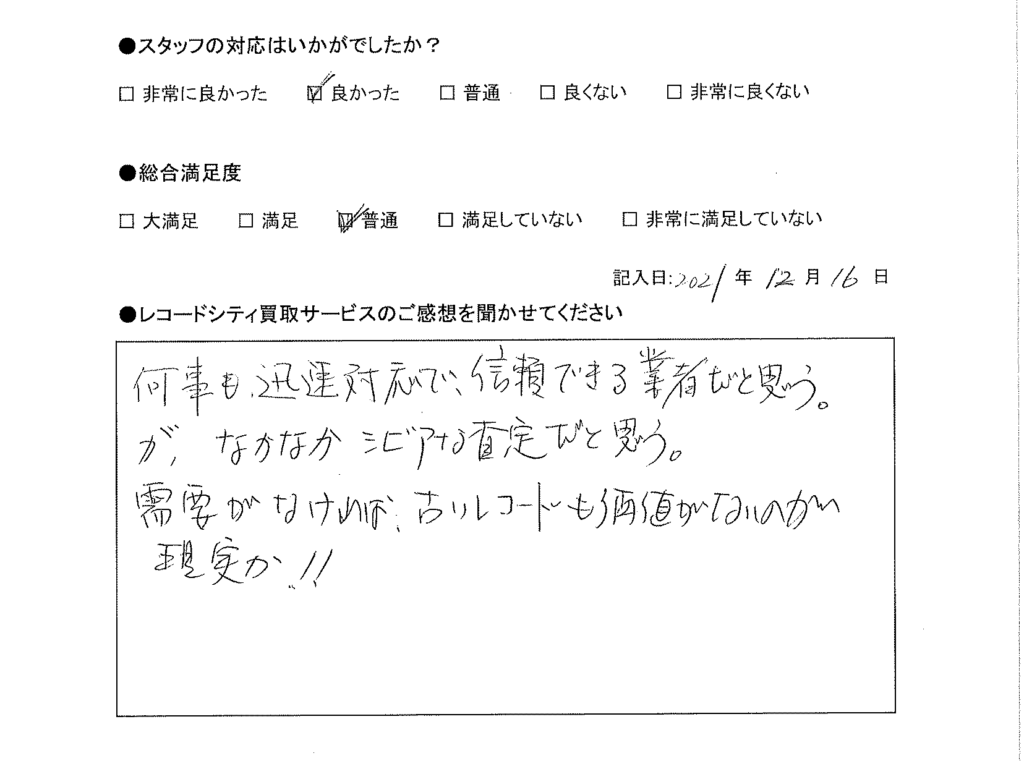 ●スタッフの対応はいかがでしたか？
□ 非常に良かった ☑ 良かった □ 普通 □ 良くない □ 非常に良くない
●総合満足度
□ 大満足 □ 満足 ☑ 普通 □ 満足していない □ 非常に満足していない
記入日:2021 年 12 月 16 日
●レコードシティ買取サービスのご感想を聞かせてください
何事も、迅速対応で、信頼できる業者だと思う。
が、なかなかシビアな査定だと思う。
需要がなければ、古いレコードも価値がないのが
現実か!!